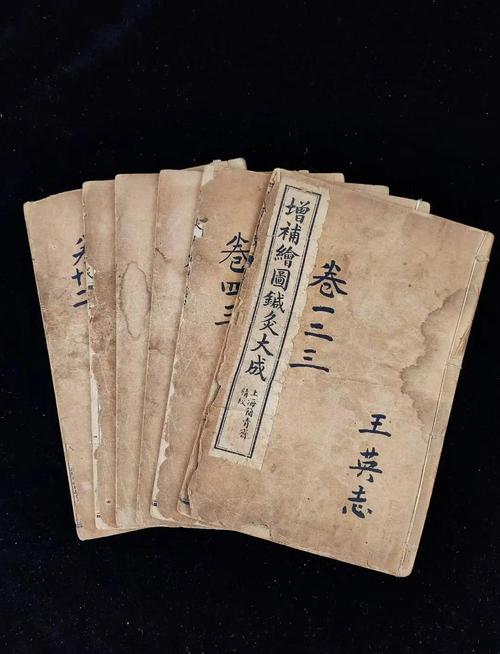 增補繪圖鍼灸大成
上海蘭青齋
精校
卷一二三
王英志
卷四
卷十二